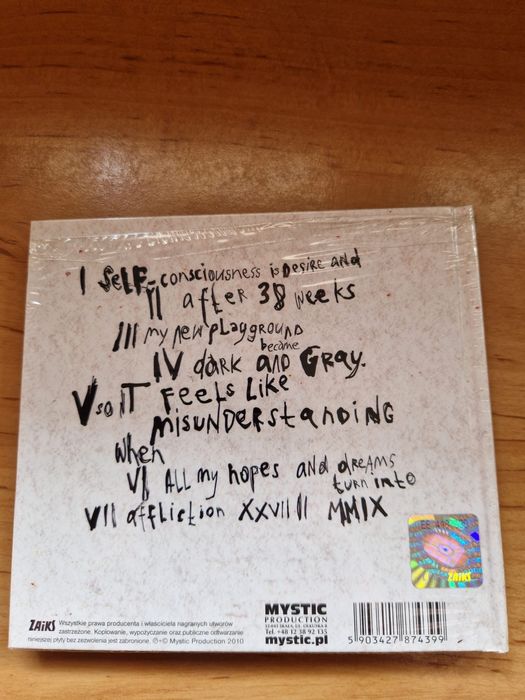 I SELF-consciousness is DESIRE and
II after 38 weeks
III my new playground
became
IV dark and Gray.
V so IT FEELS LIKE
misunderstanding
when
VI ALL my hopes and dreams
turn into
VII affliction XXVIIIII MMIX
ZAiKS
ZAiKS Wszystkie prawa producenta i właściciela nagranych utworów
zastrzeżone. Kopiowanie, wypożyczanie oraz publiczne odtwarzanie
niniejszej płyty bez zezwolenia jest zabronione. ℗+© Mystic Production 2010
MYSTIC
PRODUCTION
Tel. +48 12 38 92 135
mystic.pl
5 903427 874399